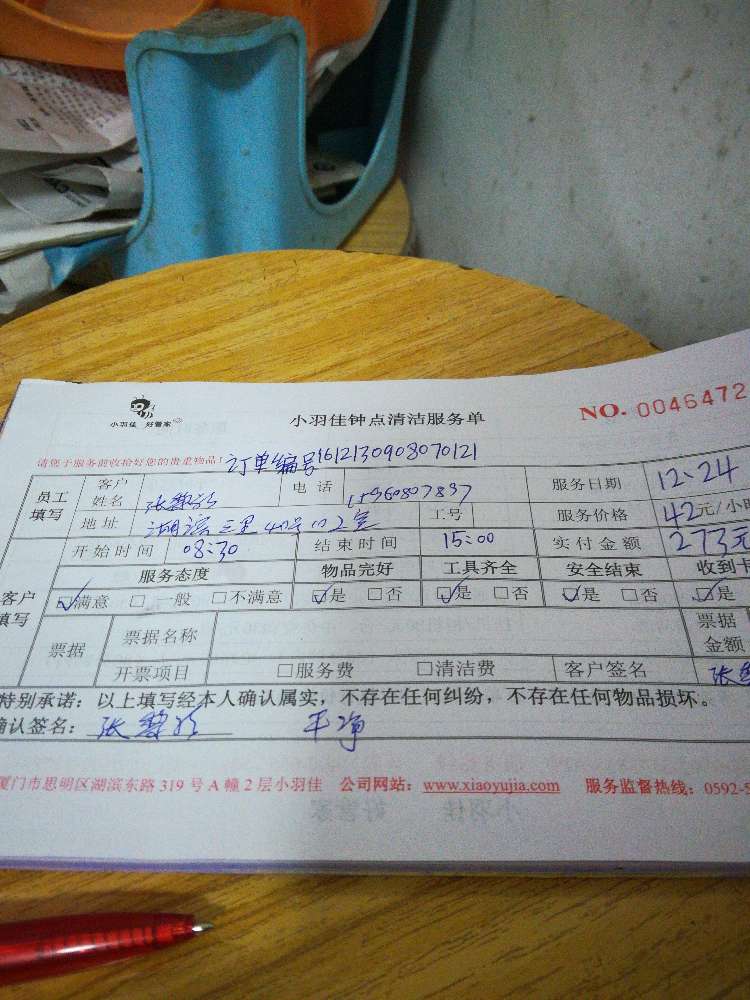 小羽佳 好管家
小羽佳钟点清洁服务单
NO. 0046472
请您于服务前收拾好您的贵重物品!
订单编号1612130908070121
员工填写 客户姓名 张 电话 服务日期 12.24
地址 湖滨三里40号 工号 服务价格 42元/小时
开始时间 08:30 结束时间 15:00 实付金额 273元
客户填写 服务态度 物品完好 工具齐全 安全结束 收到卡
☑满意 □一般 □不满意 ☑是 □否 ☑是 □否 ☑是 □否 ☑是
票据 票据名称 票据金额
开票项目 □服务费 □清洁费 客户签名 张
特别承诺：以上填写经本人确认属实，不存在任何纠纷，不存在任何物品损坏。
确认签名： 张 干净
厦门市思明区湖滨东路 319 号 A 幢 2 层小羽佳 公司网站：www.xiaoyujia.com 服务监督热线：0592-5